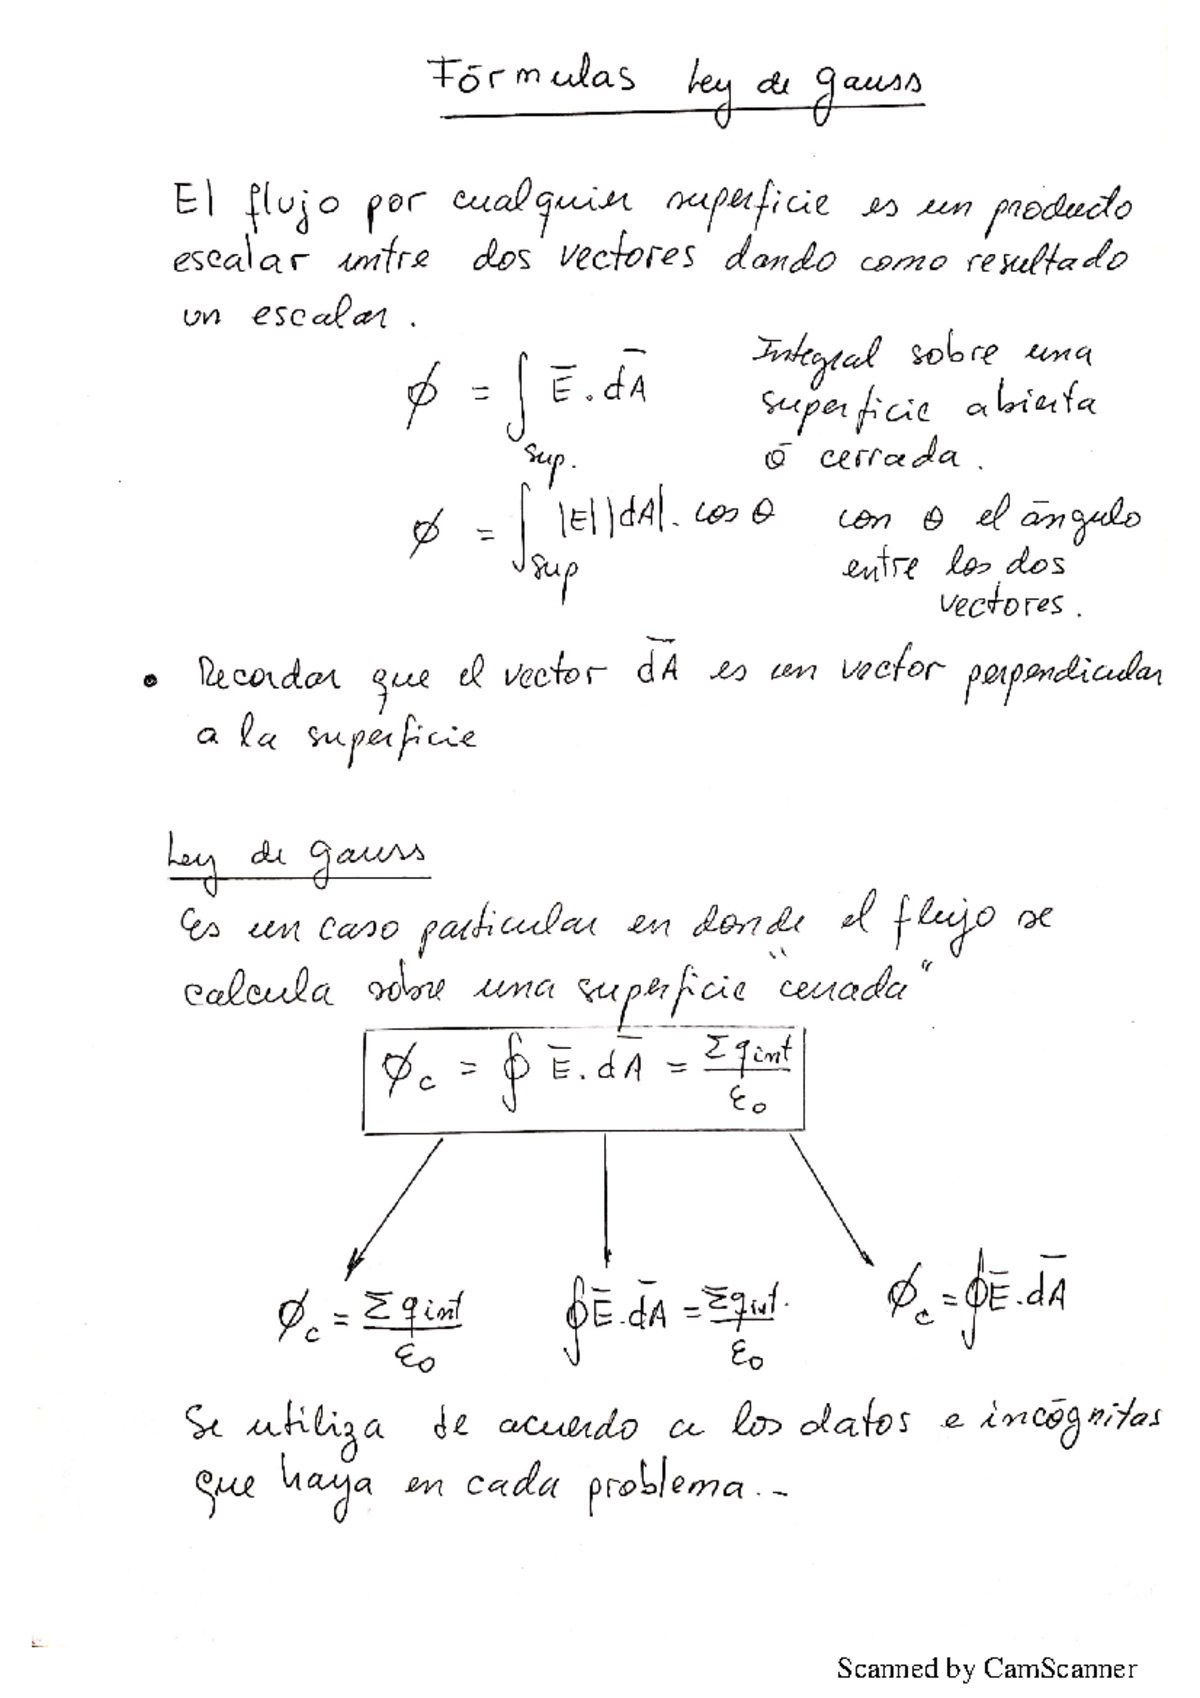 Fórmulas Ley de Gauss
El flujo por cualquier superficie es un producto
escalar entre dos vectores dando como resultado
un escalar.
ϕ = ∫ E̅ . dA̅
sup.
Integral sobre una
superficie abierta
ó cerrada.
ϕ = ∫ |E||dA|. cos θ
sup
con θ el ángulo
entre los dos
vectores.
• Recordar que el vector dA̅ es un vector perpendicular
a la superficie
Ley de Gauss
Es un caso particular en donde el flujo se
calcula sobre una superficie "cerrada"
ϕc = ∮ E̅ . dA̅ = Σ qint / ε0
ϕc = Σ qint / ε0
∮ E̅ . dA̅ = Σ qint. / ε0
ϕc = ∮ E̅ . dA̅
Se utiliza de acuerdo a los datos e incógnitas
que haya en cada problema.-
Scanned by CamScanner